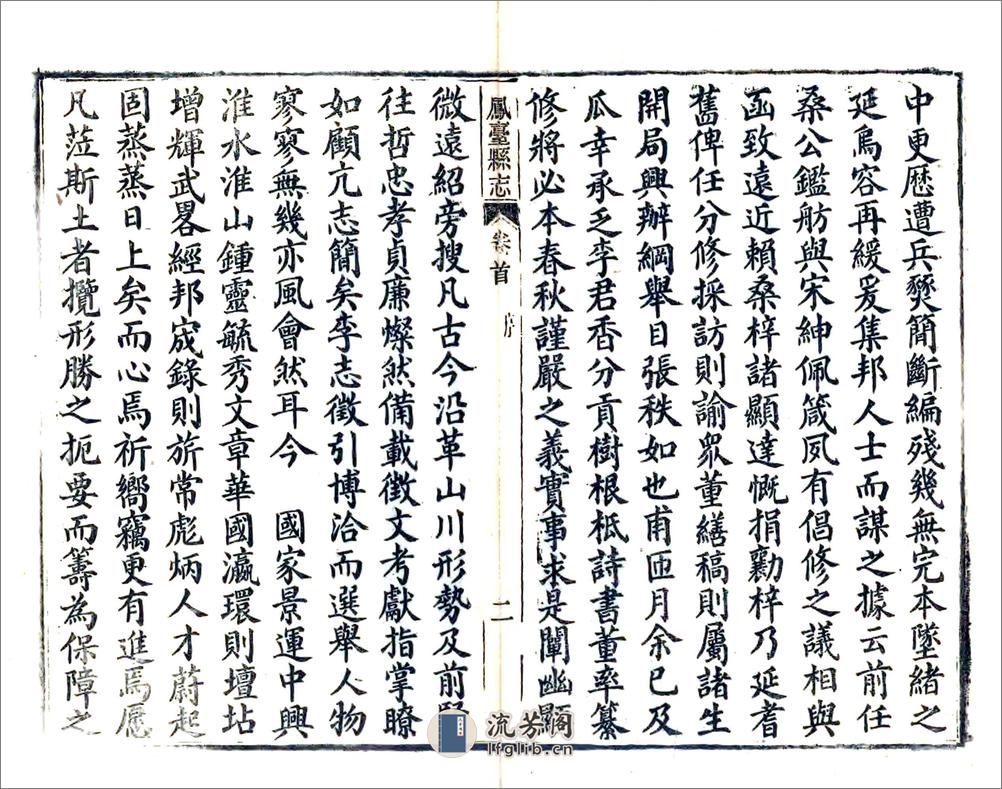 中更歷遭兵燹簡斷編殘幾無完本墜緒之
延烏容再緩爰集邦人士而謀之據云前任
桑公鑑舫與宋紳佩箴夙有倡修之議相與
函致遠近賴桑梓諸顯達慨捐勷梓乃延耆
舊俾任分修採訪則諭眾董繕稿則屬諸生
開局興辦綱舉目張秩如也甫匝月余已及
瓜幸承乏李君香分貢樹根柢詩書董率纂
修將必本春秋謹嚴之義實事求是闡幽顯
鳳臺縣志
卷首
序
二
微遠紹旁搜凡古今沿革山川形勢及前賢
往哲忠孝貞廉燦然備載徵文考獻指掌瞭
如顧亢志簡矣李志徵引博洽而選舉人物
寥寥無幾亦風會然耳今 國家景運中興
淮水淮山鍾靈毓秀文章華國瀛環則壇坫
增輝武畧經邦宬錄則旂常彪炳人才蔚起
固蒸蒸日上矣而心焉祈嚮竊更有進焉凡
凡蒞斯土者攬形勝之扼要而籌為保障之
流芳阁
lfglib.cn